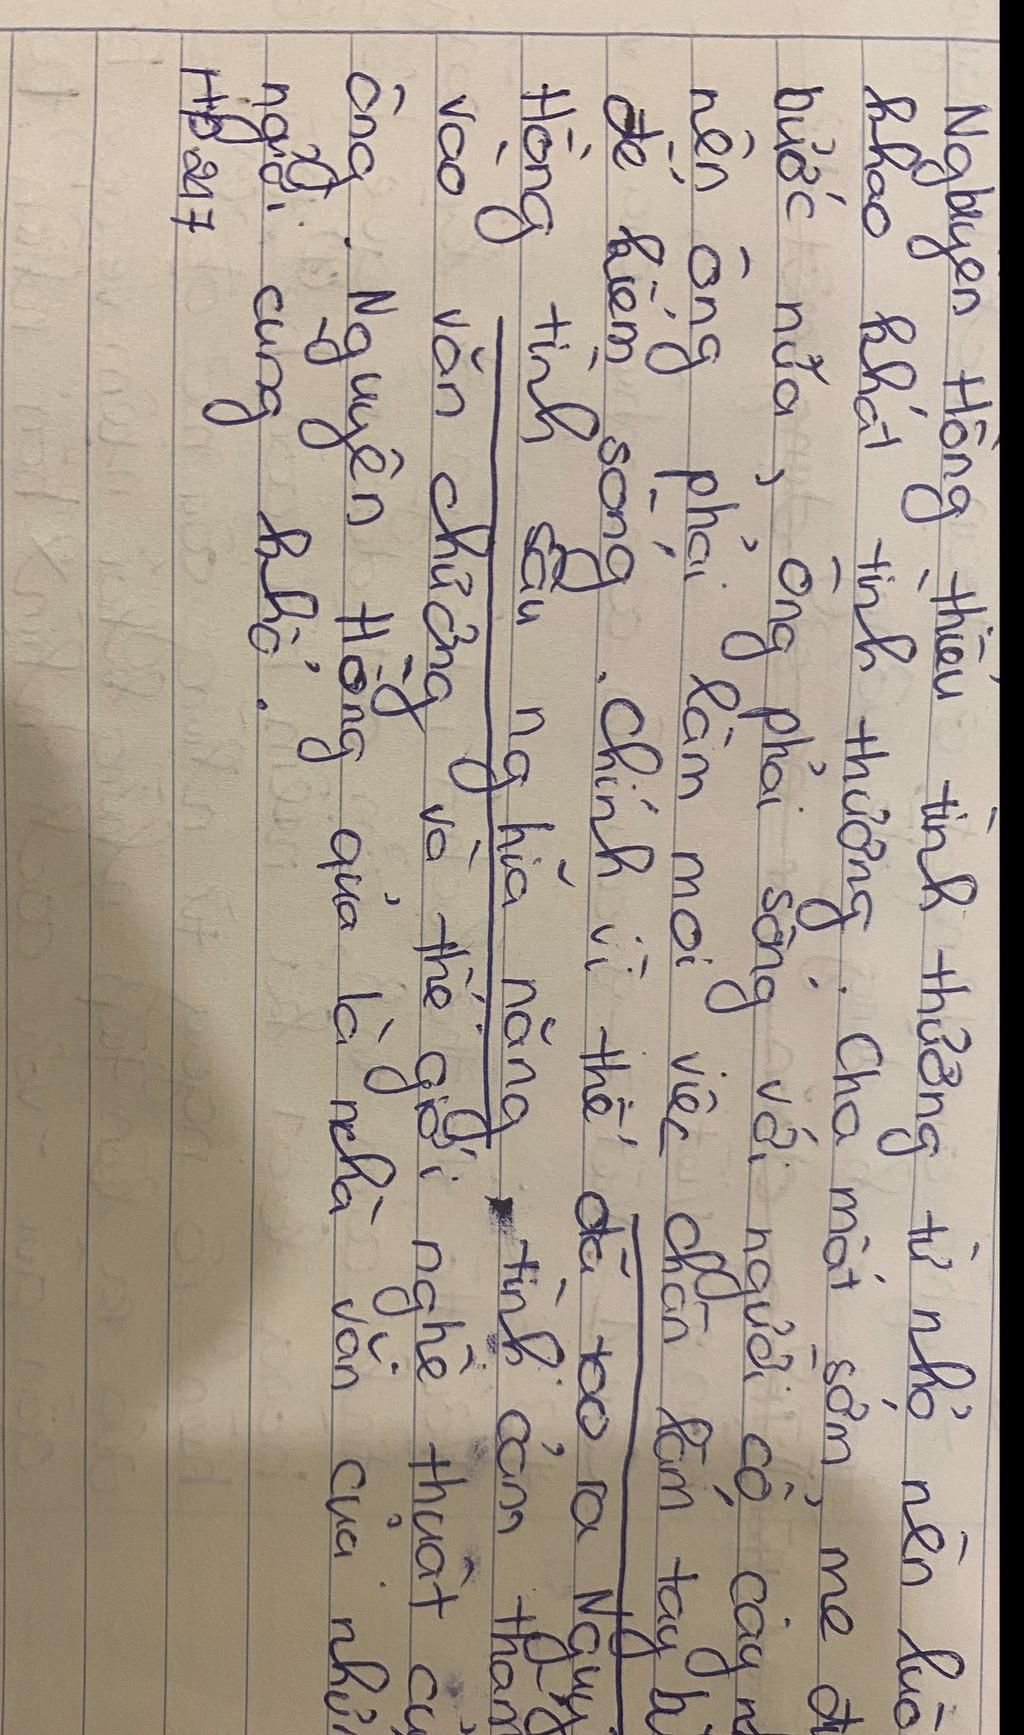 Nguyên Hồng thiếu tình thương từ nhỏ nên luô
khao khát tình thương. Cha mất sớm, mẹ đi
bước nữa, ông phải sống với người cô cay n
nên ông phải làm mọi việc chân lấm tay b
để kiếm sống. Chính vì thế đã tạo ra Nguyê
Hồng tình sâu nghĩa nặng tình cảm thấm
vào văn chương và thế giới nghệ thuật củ
ông. Nguyên Hồng quả là nhà văn của nhữn
người cùng khổ.
HP217